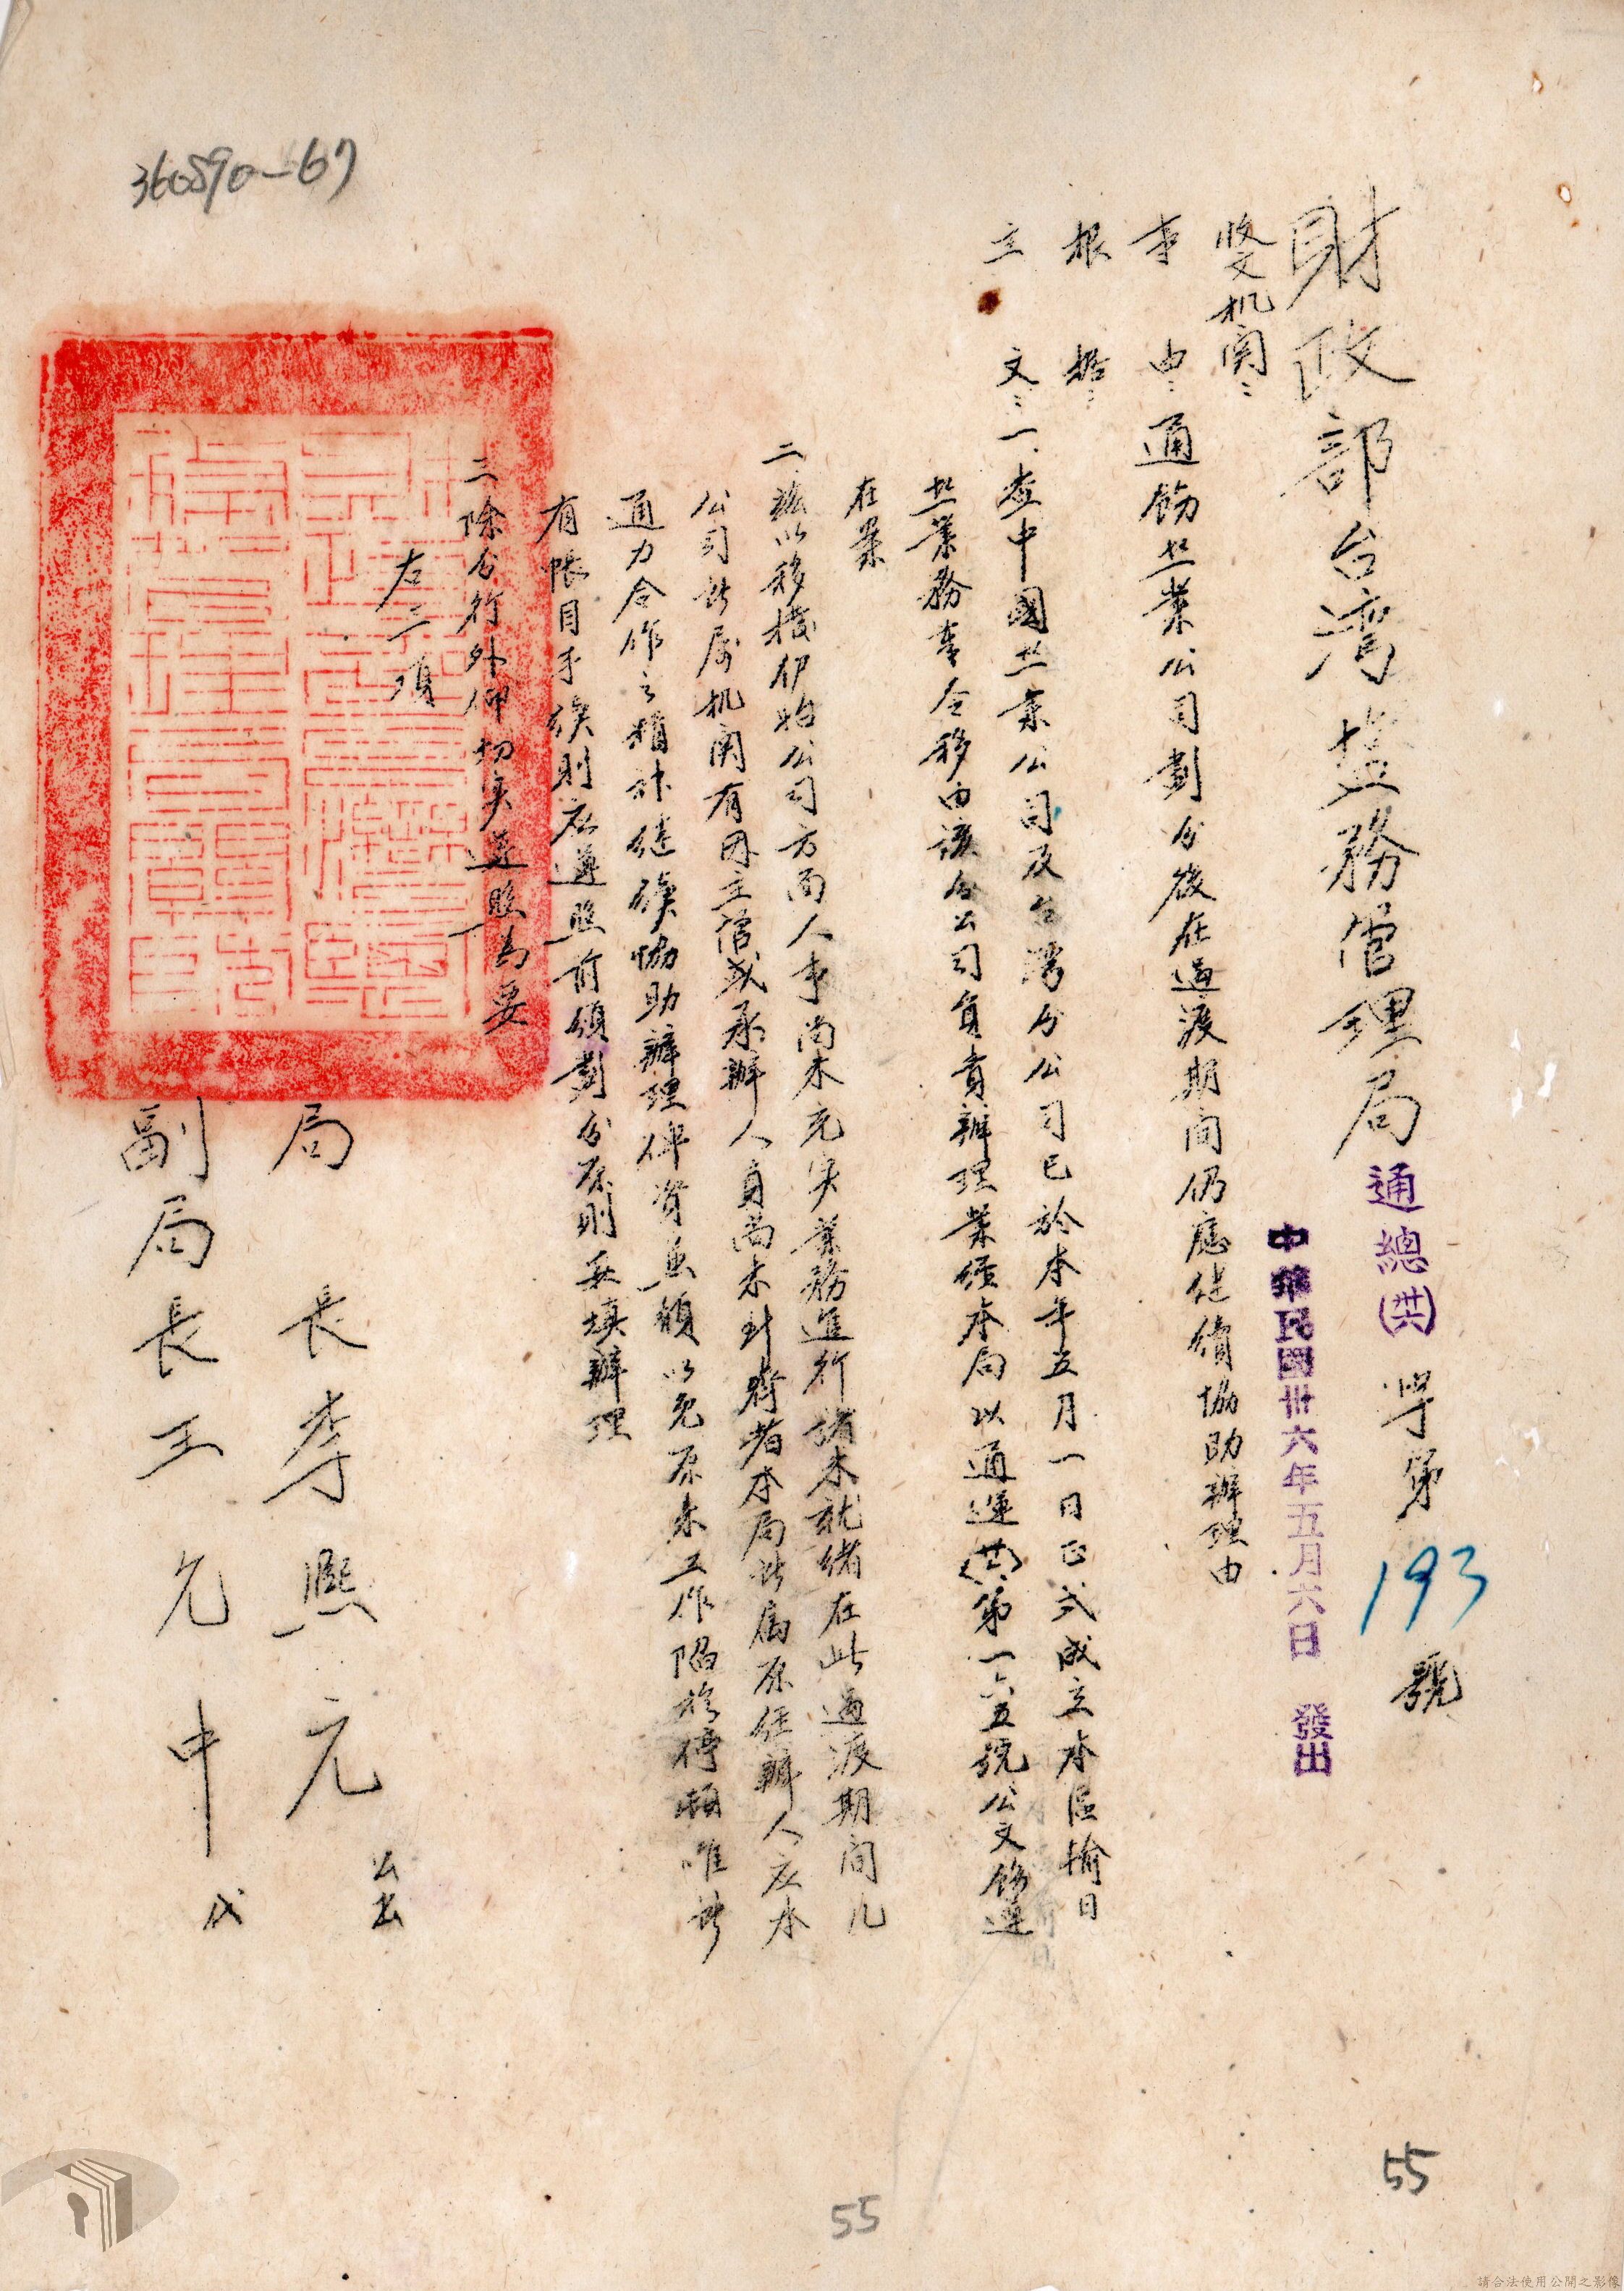 360890-67
財政部台湾盐務管理局通總(卅六)字第193號
中華民國卅六年五月六日 發出
收文机関：
事 由：通飭盐業公司劃分後在過渡期间仍應继續協助辦理由
根 据：
主 文：一、查中國盐業公司及台湾分公司已於本年五月一日正式成立本區输日
盐業務事全移由該分公司負責辦理業經本局以通運(卅六)第一六五號公文飭遵
在案
二、茲以移接伊始公司方面人事尚未充实業務進行諸未就绪在此過渡期间凡
公司所属机関有因主管或承辦人員尚未到齊者本局所属原任辦人应本
通力合作之精神继续協助辦理俾資兼顧以免原来工作陷於停頓唯所
有帐目手续則应遵照前頒劃分原則妥填辦理
三、除分行外仰切实遵照为要
右二項
局長李熙元 公出
副局長王允中 代
55
55
請合法使用公開之影像